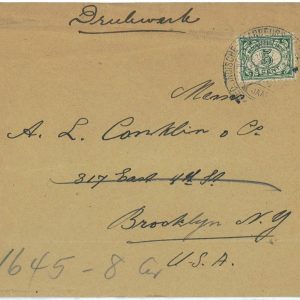 Drukwerk
3
Messrs
A. L. Conklin & Co.
317 East 4th St
Brooklyn N. Y
U.S.A.
1645-8 Av